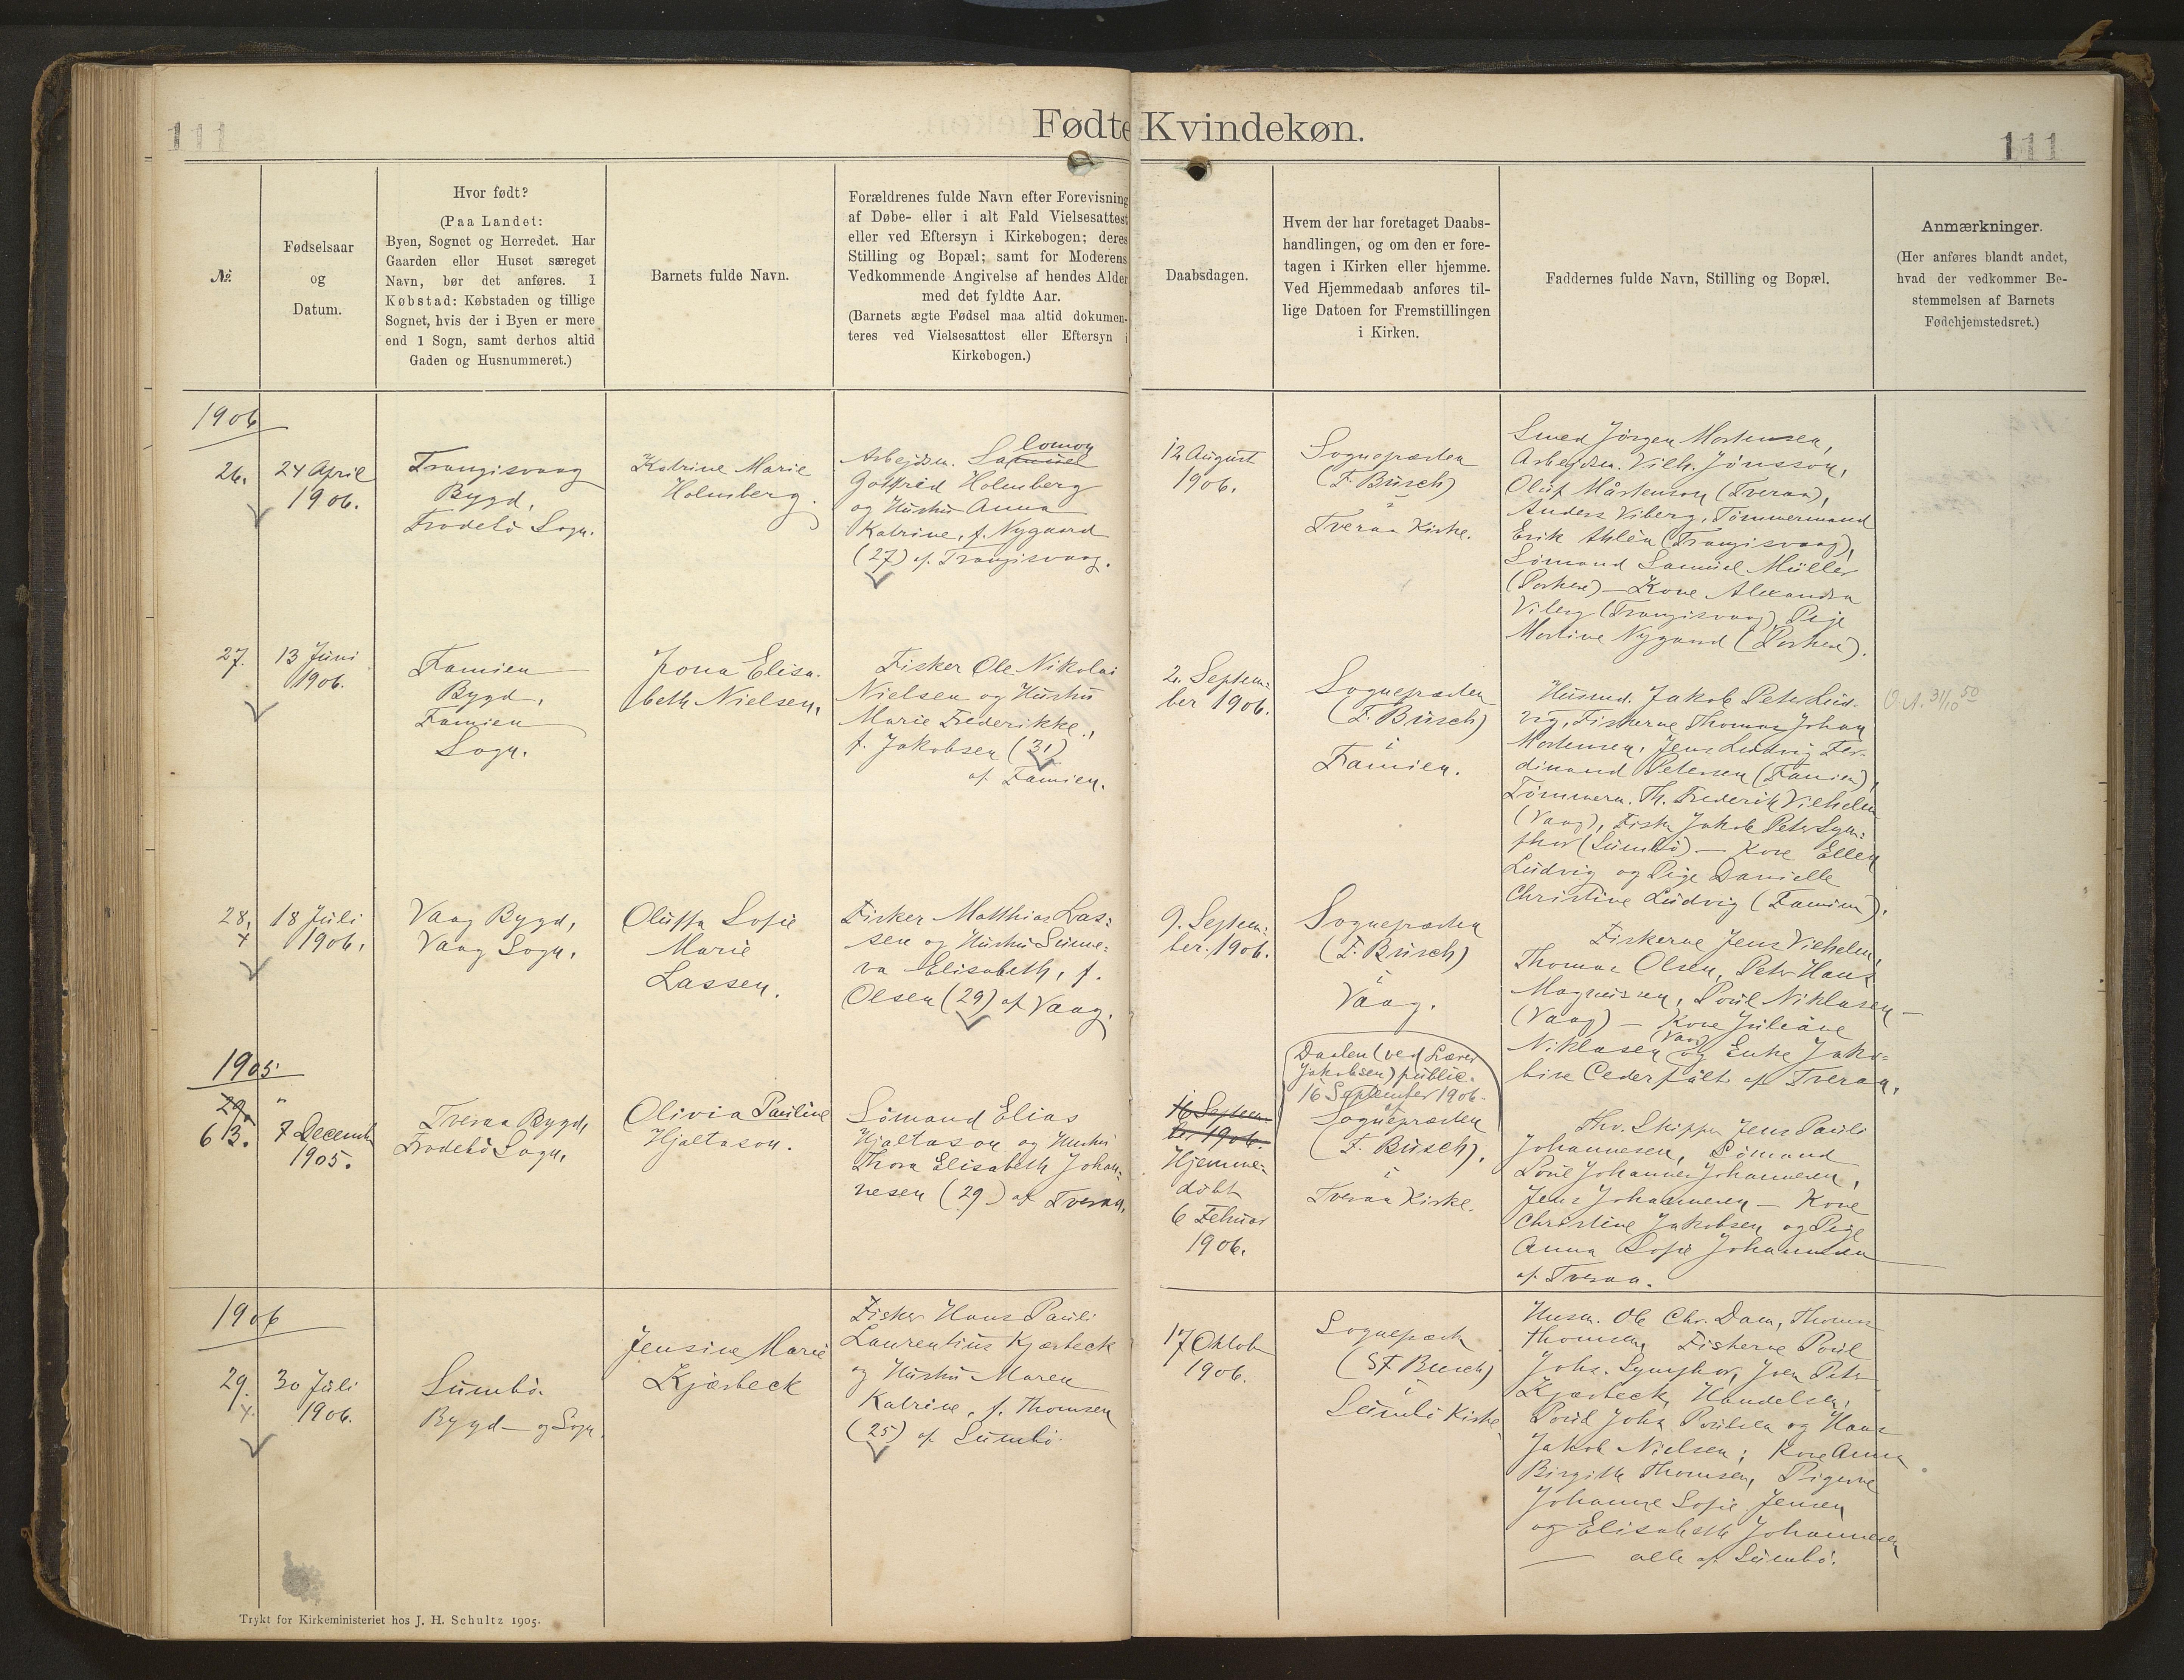 111
Fødte Kvindekøn.
111
№.
Fødselsaar
og
Datum.
Hvor født?
(Paa Landet:
Byen, Sognet og Herredet. Har
Gaarden eller Huset særeget
Navn, bør det anføres. I
Købstad: Købstaden og tillige
Sognet, hvis der i Byen er mere
end 1 Sogn, samt derhos altid
Gaden og Husnummeret.)
Barnets fulde Navn.
Forældrenes fulde Navn efter Forevisning
af Døbe- eller i alt Fald Vielsesattest
eller ved Eftersyn i Kirkebogen; deres
Stilling og Bopæl; samt for Moderens
Vedkommende Angivelse af hendes Alder
med det fyldte Aar.
(Barnets ægte Fødsel maa altid dokumen-
teres ved Vielsesattest eller Eftersyn i
Kirkebogen.)
Daabsdagen.
Hvem der har foretaget Daabs-
handlingen, og om den er fore-
tagen i Kirken eller hjemme.
Ved Hjemmedaab anføres til-
lige Datoen for Fremstillingen
i Kirken.
Faddernes fulde Navn, Stilling og Bopæl.
Anmærkninger.
(Her anføres blandt andet,
hvad der vedkommer Be-
stemmelsen af Barnets
Fødehjemstedsret.)
1906
26.
24 April
1906.
Trangisvaag
Bygd,
Frodebö Sogn.
Katrine Marie
Holmberg.
Arbejdsm. Salomon
Gottfred Holmberg
og Hustru Anna
Katrine, f. Nygaard
(27) af Trangisvaag.
12 August
1906.
Sognepræsten
(F. Busch)
i
Tveraa Kirke.
Smed Jörgen Mortensen,
Arbejdsm. Vilh. Jönsson,
Oluf Mårtenson (Tveraa),
Anders Viberg, Tömmermand
Erik Ahlén (Trangisvaag),
Sömand Samuel Müller
(Porkere) — Kone Alexandra
Viberg (Trangisvaag), Pige
Martine Nygaard (Porkere).
27.
13 Juni
1906.
Famien
Bygd,
Famien
Sogn.
Jona Elisa-
beth Nielsen.
Fisker Ole Nikolai
Nielsen og Hustru
Marie Frederikke,
f. Jakobsen (31)
af Famien.
2. Septem-
ber 1906.
Sognepræsten
(F. Busch)
i
Famien.
Husmd. Jakob Peter Lud-
vig, Fiskerne Thomas Johan
Mortensen, Jens Ludvig Fer-
dinand Petersen (Famien),
Tömmerm. Th. Frederik Vilhelm
(Vaag), Fisker Jakob Peter Sym-
phor (Sumbö) — Kone Ellen
Ludvig og Pige Danielle
Christine Ludvig (Famien).
O.A. 31/10 50
28.
18 Juli
1906.
Vaag Bygd,
Vaag Sogn.
Oluffa Sofie
Marie
Lassen.
Fisker Matthias Las-
sen og Hustru Sunne-
va Elisabeth, f.
Olsen (29) af Vaag.
9. Septem-
ber 1906.
Sognepræsten
(F. Busch)
i
Vaag.
Fiskerne Jens Vilhelm,
Thomas Olsen, Peter Hans
Magnussen, Poul Niklasen
(Vaag) — Kone Juliane
Niklasen (Vaag) og Enke Jako-
bine Cederfält af Tveraa.
1905.
29.
6 B.
7 Decemb
1905.
Tveraa Bygd,
Frodebö Sogn.
Olivia Pauline
Hjaltason.
Sömand Elias
Hjaltason og Hustru
Thora Elisabeth Johan-
nesen (29) af Tveraa.
16 Septem-
ber 1906.
Hjemme-
döbt
6 Febuar
1906.
Daaben (ved Lærer
Jakobsen) public.
16 September 1906
af
Sognepræsten
(F. Busch).
i
Tveraa Kirke.
Fhv. Skipper Jens Pauli
Johannesen, Sömand
Poul Johannes Johannesen,
Jens Johannesen — Kone
Christine Jakobsen og Pige
Anna Sofie Johannesen
af Tveraa.
1906
29.
30 Juli
1906.
Sumbö
Bygd og Sogn
Jensine Marie
Kjærbeck
Fisker Hans Pauli
Laurentius Kjærbeck
og Hustru Maren
Katrine, f. Thomsen
(25) af Sumbö.
17 Oktob
1906.
Sognepræst
(F Busch)
i
Sumbö Kirke
Husm. Ole Chr. Dam, Thomas
Thomsen, Fiskerne Poul
Johs. Symphor, Joen Peter
Kjærbeck, Handelsm.
Poul Johs. Poulsen og Hans
Jakob Nielsen; Kone Anna
Birgitte Thomsen, Pigerne
Johanne Sofie Jensen
og Elisabeth Johannesen
— alle af Sumbö.
Trykt for Kirkeministeriet hos J. H. Schultz 1905.